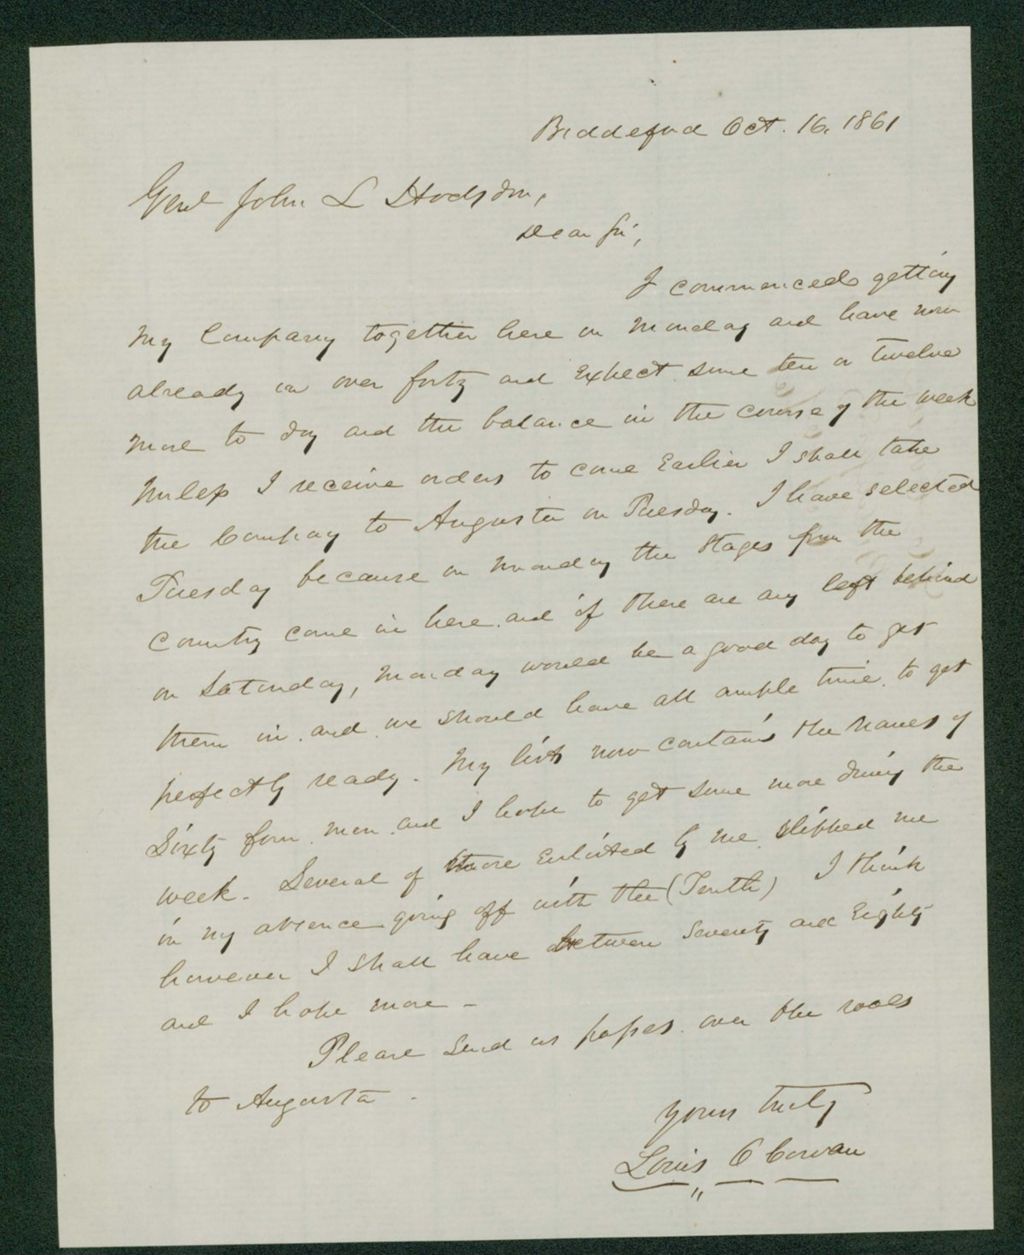 Biddeford Oct. 16, 1861
Genl John L Hodsdon,
Dear Sir,
I commenced getting
my Company together here on Monday and have now
already in over forty and expect some ten or twelve
more to day and the balance in the course of the week
Unless I receive orders to come Earlier I shall take
the Company to Augusta on Tuesday. I have selected
Tuesday because on Monday the Stages from the
Country come in here and if there are any left behind
on Saturday, Monday would be a good day to get
them in and we should have all ample time to get
perfectly ready. My list now contains the names of
Sixty four men and I hope to get some more during the
week. Several of those Enlisted by me slipped me
in my absence going off with the (Tenth) I think
however I shall have between Seventy and Eighty
and I hope more -
Please send us passes over the roads
to Augusta.
Yours truly
Louis O Cowan